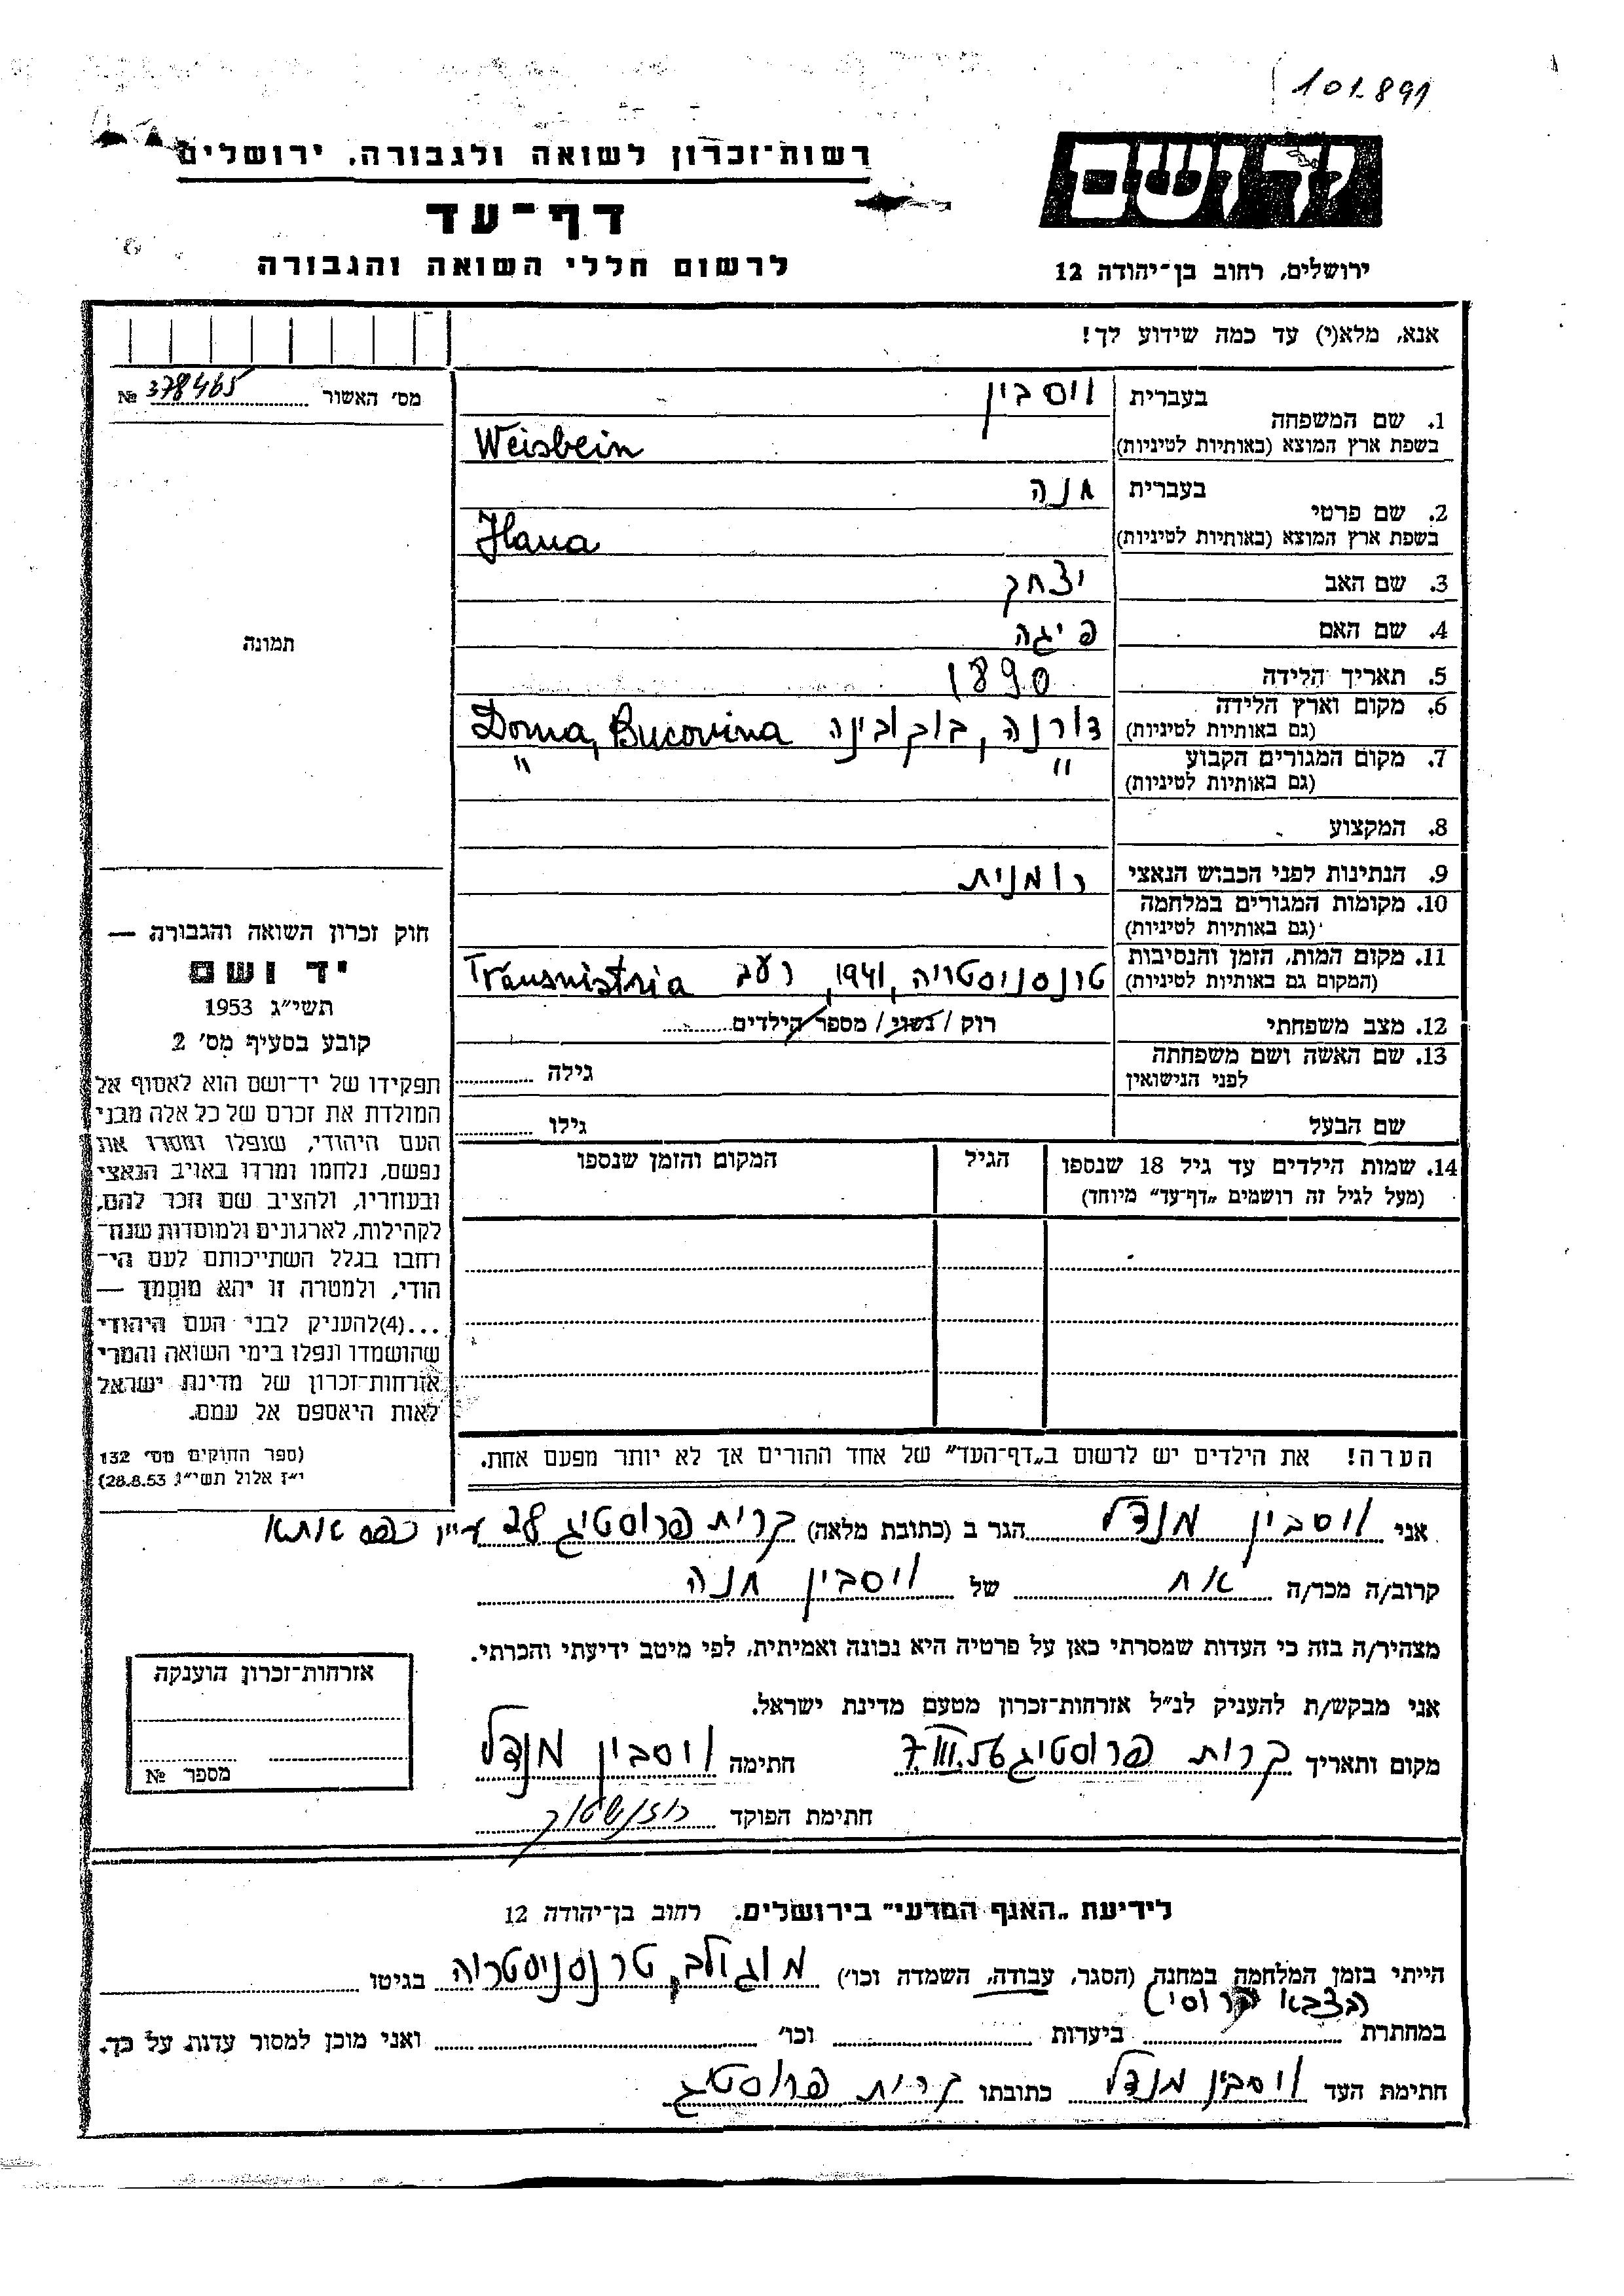 101.891
יד ושם
ירושלים, רחוב בן־יהודה 12
רשות־זכרון לשואה ולגבורה, ירושלים
דף־עד
לרשום חללי השואה והגבורה
אנא, מלא(י) עד כמה שידוע לך!
מס׳ האשור № 378465
תמונה
בעברית ויסבין
1. שם המשפחה
בשפת ארץ המוצא (באותיות לטיניות) Weisbein
בעברית חנה
2. שם פרטי
בשפת ארץ המוצא (באותיות לטיניות) Hana
3. שם האב יצחק
4. שם האם פיגה
5. תאריך הלידה 1890
6. מקום וארץ הלידה דורנה, בוקובינה Dorna, Bucovina
(גם באותיות לטיניות)
7. מקום המגורים הקבוע " "
(גם באותיות לטיניות)
8. המקצוע
9. הנתינות לפני הכבוש הנאצי רומנית
10. מקומות המגורים במלחמה
(גם באותיות לטיניות)
11. מקום המות, הזמן והנסיבות טרנסניסטריה, 1941, רעב Transnistria
(המקום גם באותיות לטיניות)
12. מצב משפחתי רוק / נשוי / מספר הילדים
13. שם האשה ושם משפחתה גילה
לפני הנישואין
שם הבעל גילו
14. שמות הילדים עד גיל 18 שנספו הגיל המקום והזמן שנספו
(מעל לגיל זה רושמים „דף־עד״ מיוחד)
חוק זכרון השואה והגבורה —
יד ושם
תשי״ג 1953
קובע בסעיף מס׳ 2
תפקידו של יד־ושם הוא לאסוף אל
המולדת את זכרם של כל אלה מבני
העם היהודי, שנפלו ומסרו את
נפשם, נלחמו ומרדו באויב הנאצי
ובעוזריו, ולהציב שם וזכר להם,
לקהילות, לארגונים ולמוסדות שנח־
רחבו בגלל השתייכותם לעם הי־
הודי, ולמטרה זו יהא מוסמך —
...(4)להעניק לבני העם היהודי
שהושמדו ונפלו בימי השואה והמרי
אזרחות־זכרון של מדינת ישראל
לאות היאספם אל עמם.
(ספר החוקים מס׳ 132
י״ז אלול תשי״ג 28.8.53)
הערה! את הילדים יש לרשום ב„דף־העד״ של אחד ההורים אך לא יותר מפעם אחת.
אני ויסבין מנדל הגר ב (כתובת מלאה) קרית פרוסטיג 28
קרוב/ה מכר/ה אח של ויסבין חנה
מצהיר/ה בזה כי העדות שמסרתי כאן על פרטיה היא נכונה ואמיתית, לפי מיטב ידיעתי והכרתי.
אני מבקש/ת להעניק לנ״ל אזרחות־זכרון מטעם מדינת ישראל.
מקום ותאריך קרית פרוסטיג 7.III.56 חתימה ויסבין מנדל
חתימת הפוקד
אזרחות־זכרון הוענקה
מספר №
לידיעת „האגף המדעי״ בירושלים. רחוב בן־יהודה 12
הייתי בזמן המלחמה במחנה (הסגר, עבודה, השמדה וכו׳) מוגילב, טרנסניסטריה בגיטו
(בצבא רוסי)
במחתרת ביערות וכו׳ ואני מוכן למסור עדות על כך.
חתימת העד ויסבין מנדל כתובתו קרית פרוסטיג